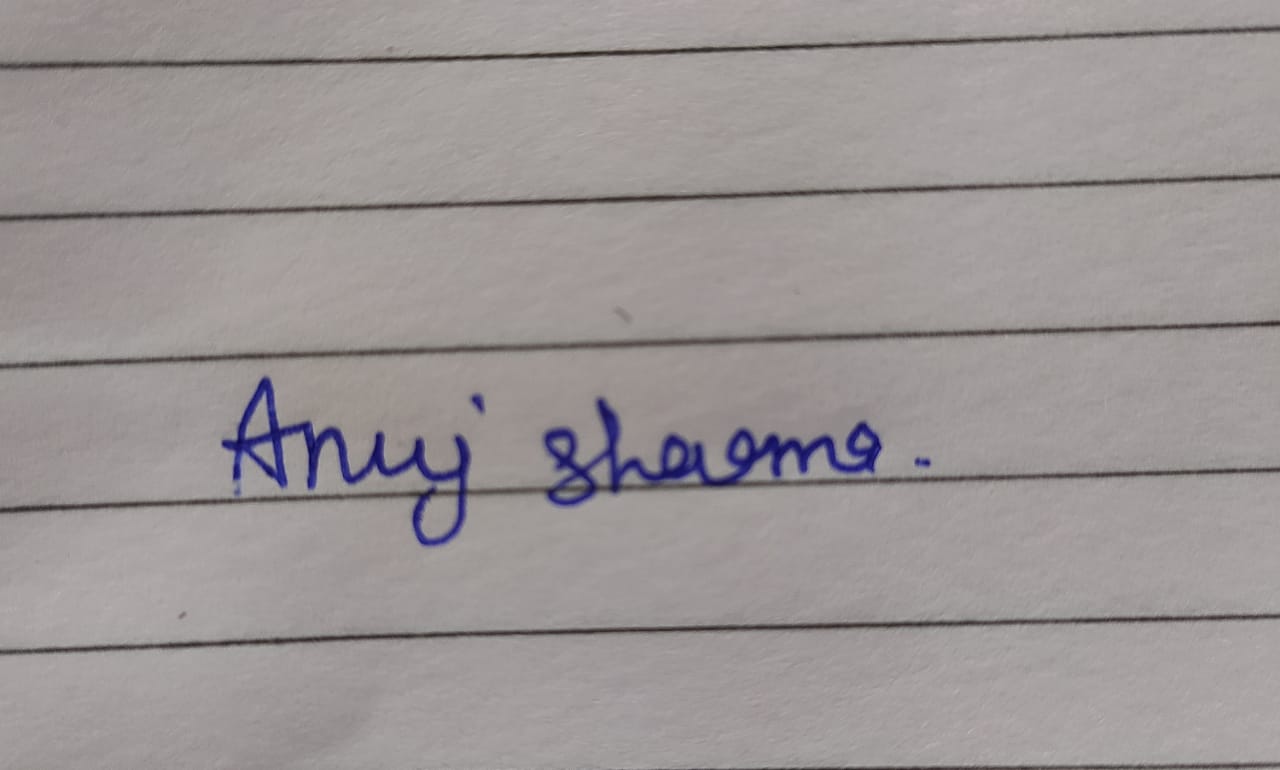 Anuj sharma.